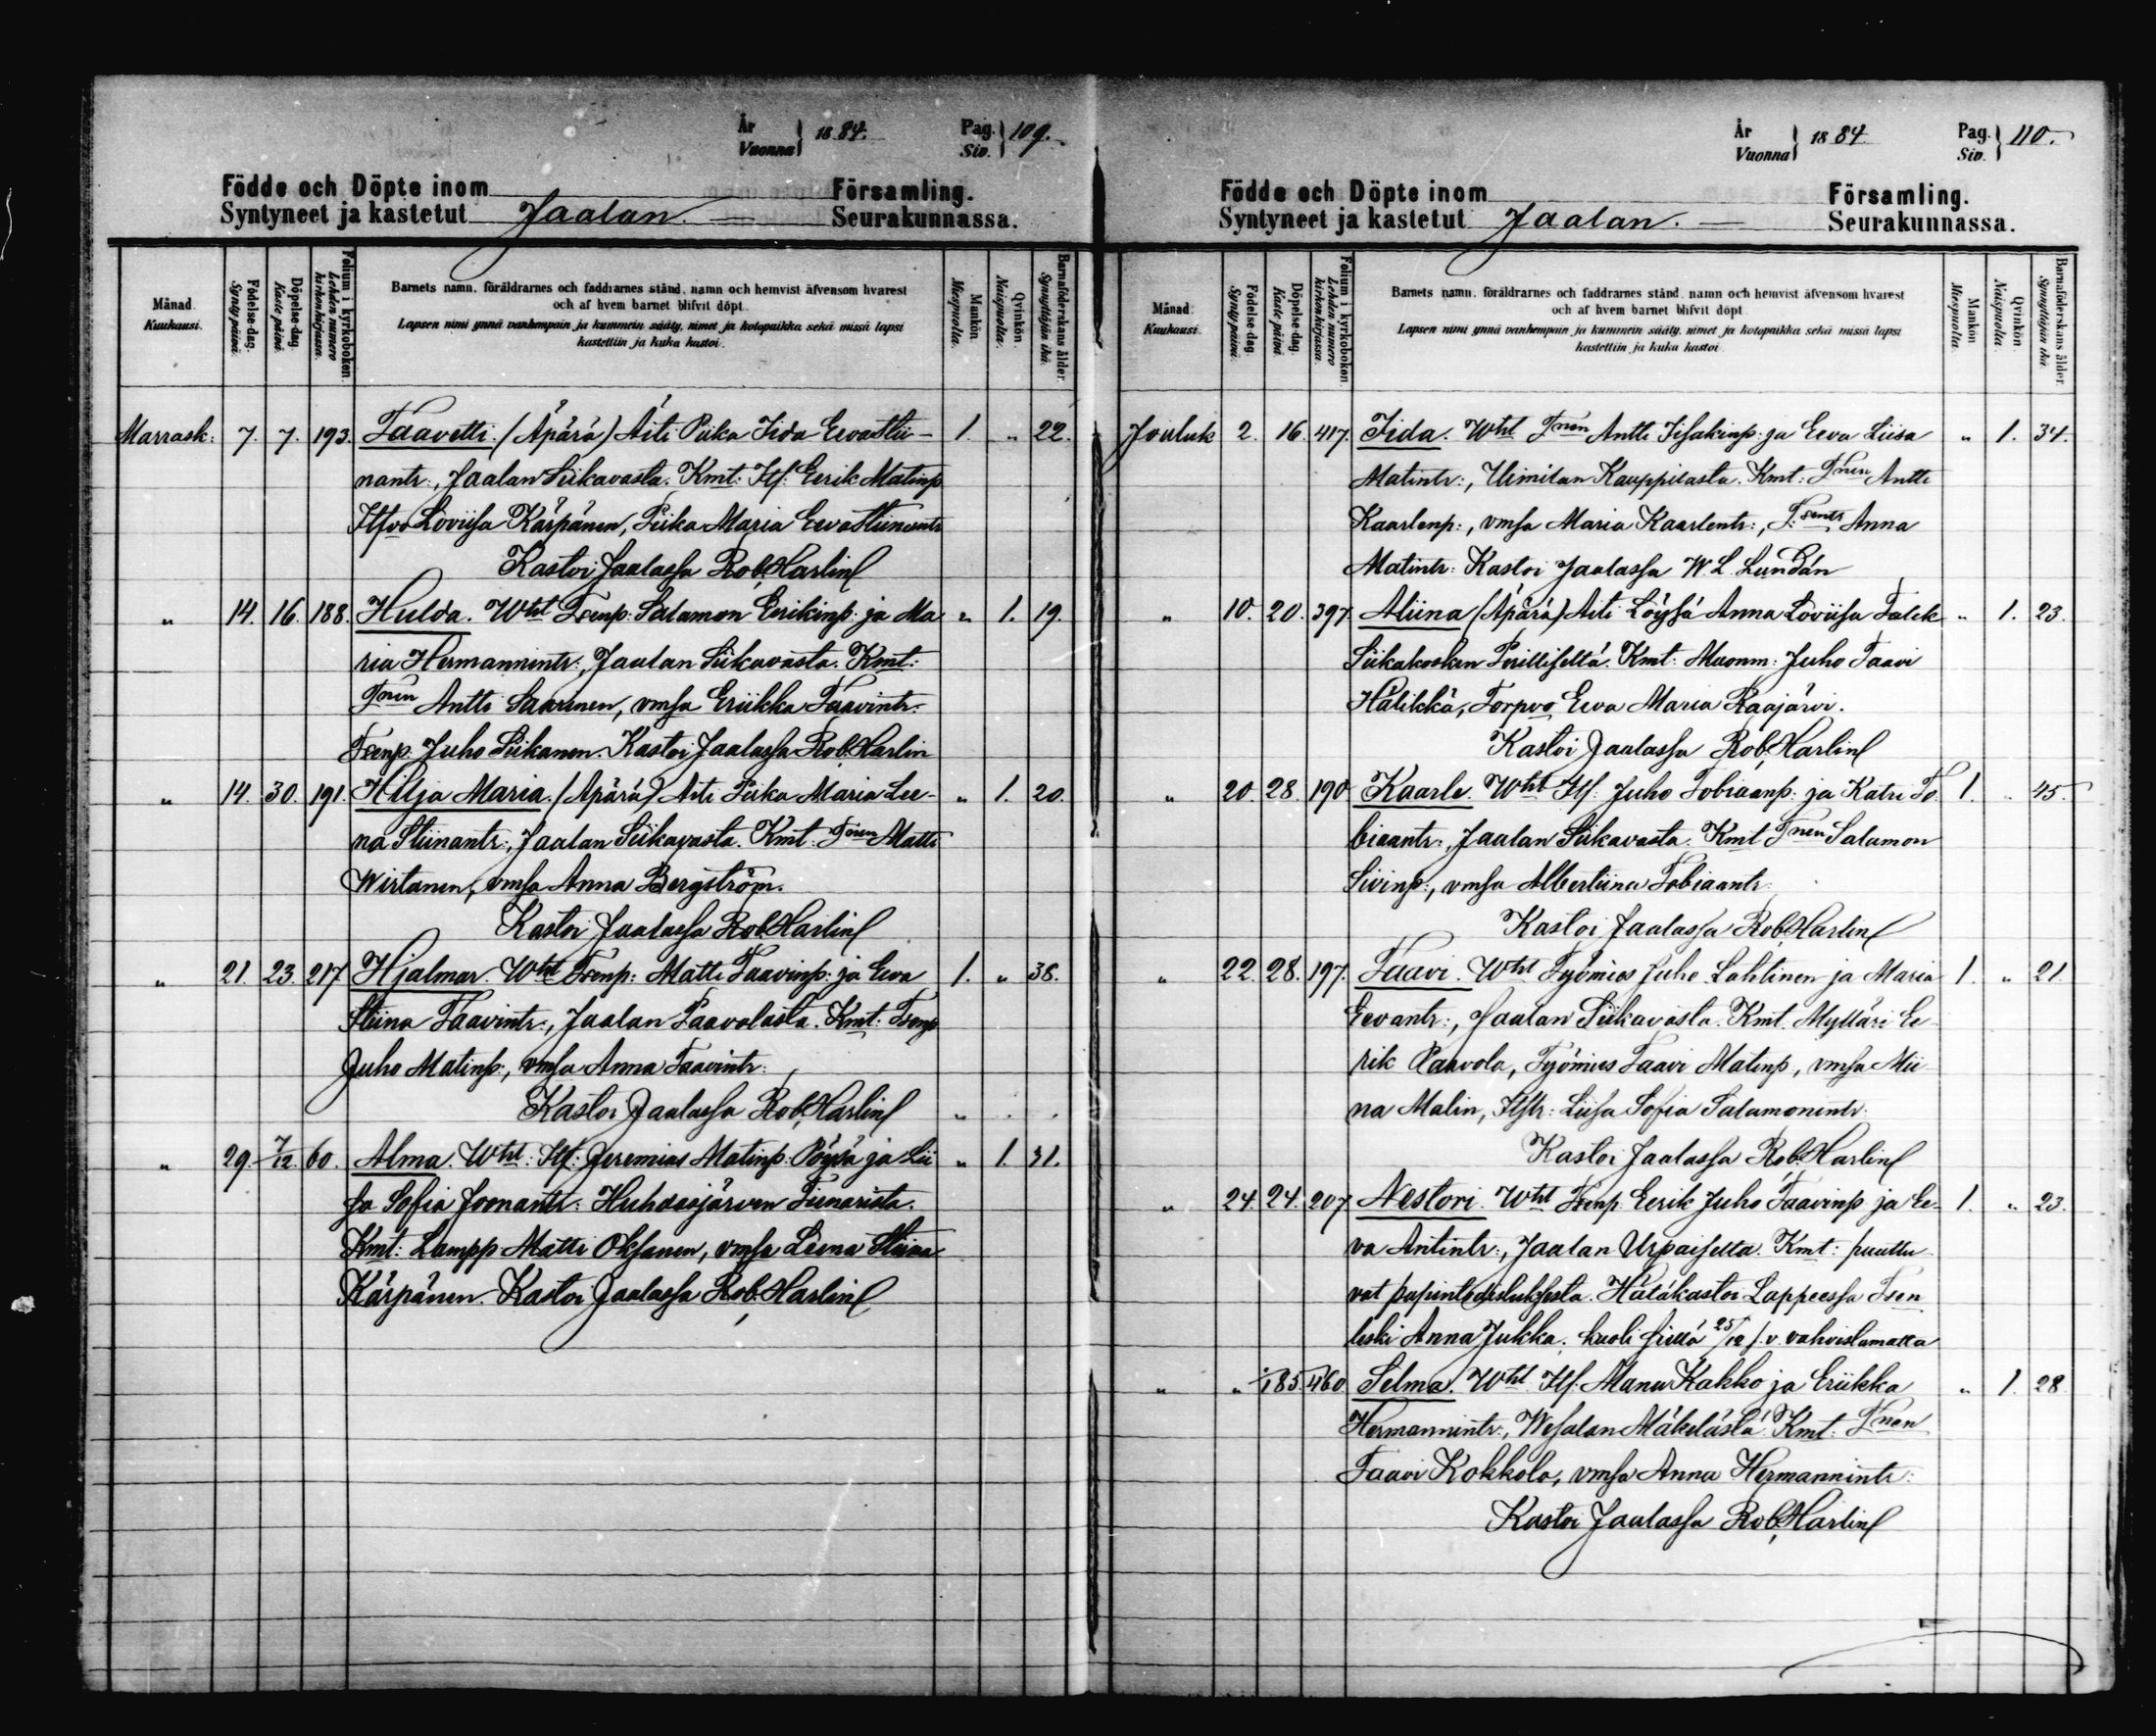 År
Vuonna } 1884. Pag.
Siv. } 109.
Födde och Döpte inom Församling.
Syntyneet ja kastetut Jaalan. — Seurakunnassa.
Månad. Kuukausi.
Födelse-dag. Synty päivä.
Döpelse-dag. Kaste päivä.
Folium i kyrkoboken. Lehden numero kirkonkirjassa.
Barnets namn, föräldrarnes och faddrarnes stånd, namn och hemvist äfvensom hvarest
och af hvem barnet blifvit döpt.
Lapsen nimi ynnä vanhempain ja kummein sääty, nimet ja kotopaikka sekä missä lapsi
kastettiin ja kuka kastoi.
Mankön. Miespuolta.
Qvinkön. Naispuolta.
Barnaföderskans ålder. Synnyttäjän ikä.
Marrask: 7. 7. 193. Taavetti. (Äpärä) Äiti Piika Iida Eevastii- 1. „ 22.
nantr:, Jaalan Siikavasta. Kmt: Itsf: Eerik Matinp
Itsfvo Loviisa Kärpänen, Piika Maria Eeva Stiinantr
Kastoi Jaalassa Rob. Harlin
„ 14. 16. 188. Hulda. Wht Trenp: Salamon Eerikinp: ja Ma „ 1. 19.
ria Hermannintr:, Jaalan Siikavasta. Kmt:
Tnen Antti Saarinen, vmsa Eriikka Taavintr:
Trenp. Juho Siikanen. Kastoi Jaalassa Rob. Harlin
„ 14. 30. 191. Hilja Maria. (Äpärä) Äiti Piika Maria Lee- „ 1. 20.
na Stiinantr:, Jaalan Siikavasta. Kmt: Tnen Matti
Wirtanen, vmsa Anna Bergström.
Kastoi Jaalassa Rob. Harlin
„ 21. 23. 217 Hjalmar. Wht Trenp: Matti Taavinp: ja Eeva 1. „ 38.
Stiina Taavintr:, Jaalan Paavolasta. Kmt: Trenp
Juho Matinp:, vmsa Anna Taavintr:
Kastoi Jaalassa Rob. Harlin „ . .
„ 29. 7/12. 60. Alma. Wht: Itsf: Jeremias Matinp: Pöyrä ja Lii „ 1. 31.
sa Sofia Joonantr: Huhdasjärven Tiinarista.
Kmt: Lampp Matti Oksanen, vmsa Leena Stiina
Kärpänen. Kastoi Jaalassa Rob. Harlin
År
Vuonna } 1884. Pag.
Siv. } 110.
Födde och Döpte inom Församling.
Syntyneet ja kastetut Jaalan. — Seurakunnassa.
Månad. Kuukausi.
Födelse-dag. Synty päivä.
Döpelse-dag. Kaste päivä.
Folium i kyrkoboken. Lehden numero kirkonkirjassa.
Barnets namn, föräldrarnes och faddrarnes stånd, namn och hemvist äfvensom hvarest
och af hvem barnet blifvit döpt.
Lapsen nimi ynnä vanhempain ja kummein sääty, nimet ja kotopaikka sekä missä lapsi
kastettiin ja kuka kastoi.
Mankön. Miespuolta.
Qvinkön. Naispuolta.
Barnaföderskans ålder. Synnyttäjän ikä.
Jouluk 2. 16. 417. Iida. Wht Tnen Antti Iisakinp: ja Eeva Liisa „ 1. 34.
Matintr:, Uimilan Kauppilasta. Kmt: Tnen Antti
Kaarlenp:, vmsa Maria Kaarlentr:, Anna
Matintr: Kastoi Jaalassa W. L. Lundán
„ 10. 20. 397. Aliina (Äpärä) Äiti Löysä Anna Loviisa Falck „ 1. 23.
Siikakosken Perillisellä. Kmt: Muonm: Juho Taavi
Hälikkä, Torpvo Eeva Maria Raajärvi.
Kastoi Jaalassa Rob. Harlin
„ 20. 28. 190 Kaarle. Wht Itsf: Juho Tobiaanp: ja Katri To 1. „ 45.
biaantr:, Jaalan Siikavasta. Kmt Tnen Salamon
Sivinp:, vmsa Albertiina Tobiaantr:
Kastoi Jaalassa Rob. Harlin
„ 22. 28. 197. Taavi. Wht Työmies Juho Lahtinen ja Maria 1. „ 21.
Eevantr:, Jaalan Siikavasta. Kmt. Mylläri Ee
rik Paavola, Työmies Taavi Matinp, vmsa Mii
na Malin, Itstr: Liisa Sofia Salamonintr.
Kastoi Jaalassa Rob. Harlin
„ 24. 24. 207 Nestori. Wht Trenp Eerik Juho Taavinp ja Ee- 1. „ 23.
va Antintr:, Jaalan Urpaiselta. Kmt: puuttu
vat papintodistuksesta. Hätäkastoi Lappeessa Tren
leski Anna Jukka. kuoli siellä 25/12 s. v. vahvistamatta
„ „ 1/85. 460. Selma. Wht Itsf: Manu Kakko ja Eriikka „ 1. 28
Hermannintr:, Wesalan Mäkelästä. Kmt: Tnen
Taavi Kokkola, vmsa Anna Hermannintr:
Kastoi Jaalassa Rob. Harlin